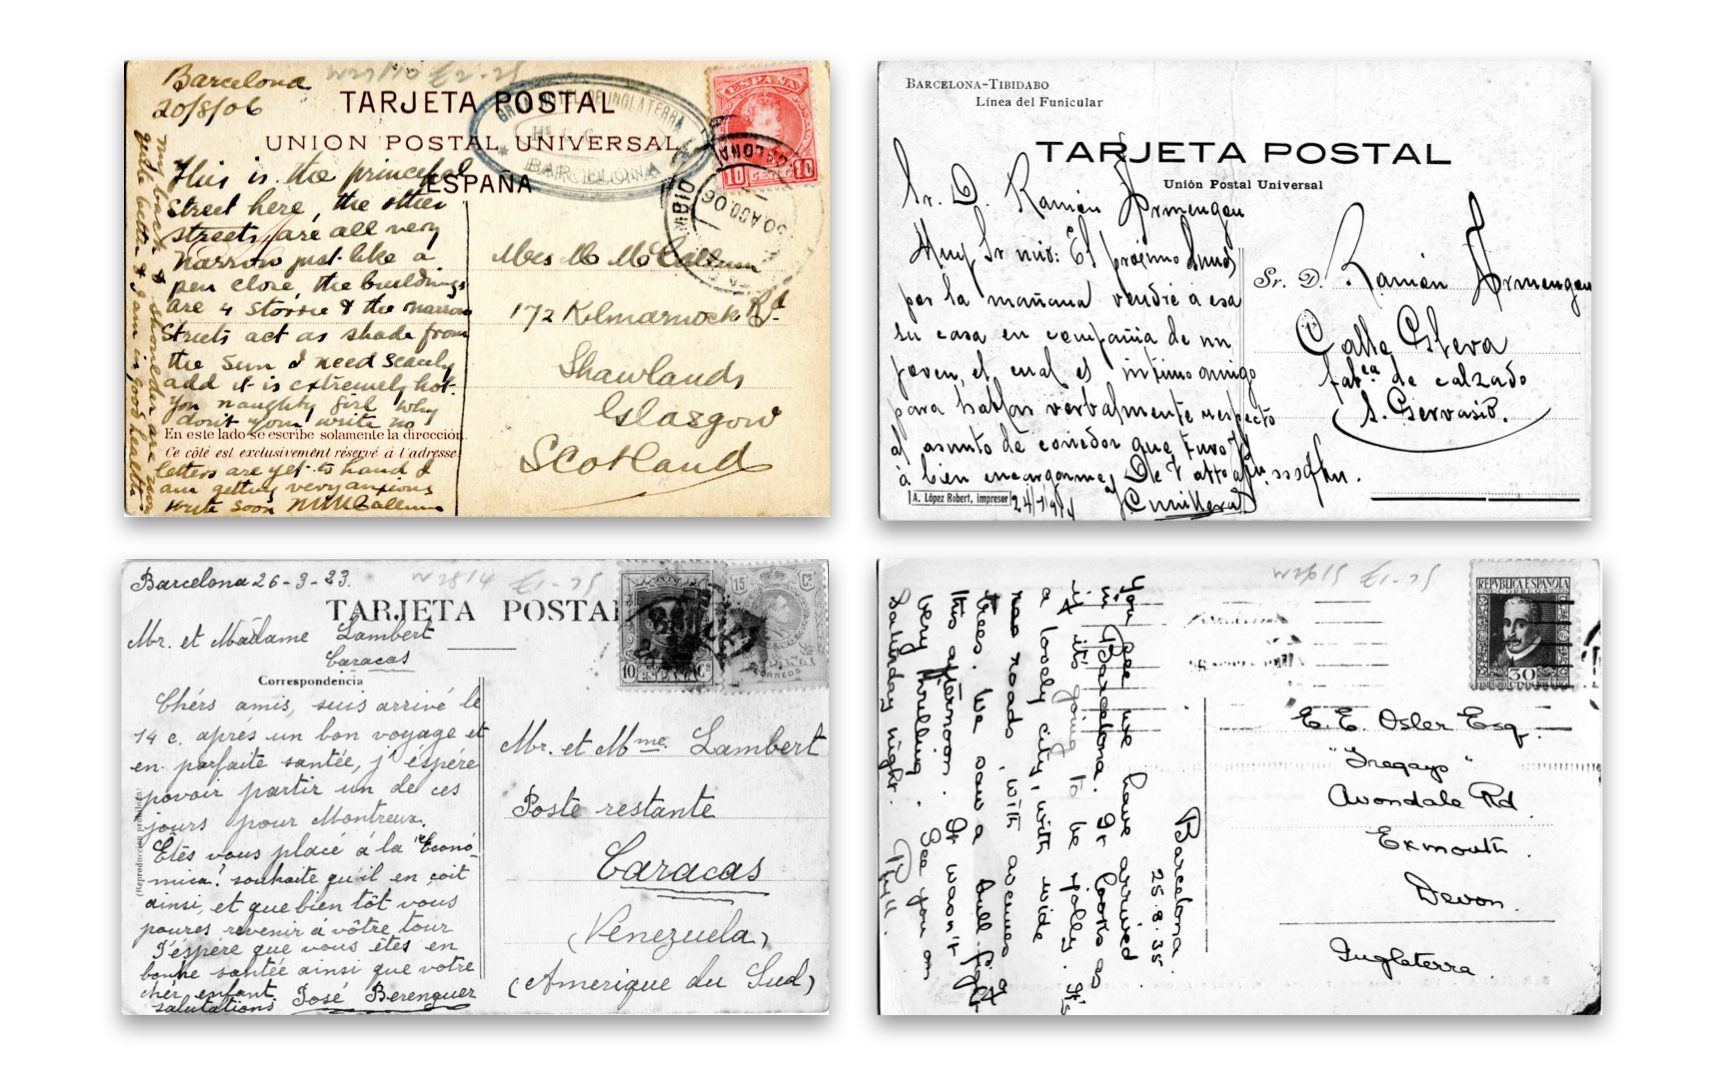 Barcelona
20/8/06
W2970 £2-25
TARJETA POSTAL
UNION POSTAL UNIVERSAL
ESPAÑA
GRAN HOTEL DE INGLATERRA
BARCELONA
ESPAÑA
10 CENT 10
BARCELONA
CAMBIO
30 AGO 06
This is the principal
street here, the other
streets, are all very
narrow just like a
pen close the buildings
are 4 stories & the narrow
Streets act as shade from
the sun I need scarely
add it is extremely hot.
You naughty girl why
don't you write no
En este lado se escribe solamente la dirección.
Ce côté est exclusivement réservé à l'adresse.
letters are yet to hand I
am getting very anxious
write soon McCallum
my back & shoulder are now
quite better & I am in good health
Mrs M McCallum
172 Kilmarnock Rd
Shawlands
Glasgow
Scotland
BARCELONA-TIBIDABO
Línea del Funicular
TARJETA POSTAL
Unión Postal Universal
Sr. D. Ramón Armengou
Muy Sr mio: El próximo lunes
por la mañana vendré á esa
su casa en compañia de un
joven, el cual es intimo amigo
para hablar verbalmente respecto
al asunto de corredor que tuvo
á bien encargarme,
Cunillera
24/7/914
A. López Robert, impresor
Sr. D. Ramón Armengou
Calle Esteva
fabca de calzado
S. Gervasio.
Barcelona 26-3-23.
W2814 £1-25
TARJETA POSTAL
Mr. et Madame Lambert
Caracas
Correspondencia
Chérs amis, suis arrivé le
14 c. aprés un bon voyage et
en parfaite santée, j'éspére
povoir partir un de ces
jours pour Montreux.
Êtes vous placé á la "Econó-
mica? souhaite qu'il en çoit
ainsi, et que bien tôt vous
poures revenir á vôtre tour
J'éspére que vous êtes en
bonne santée ainsi que votre
chér enfant.
Salutations José Berenguer
(Reproducción prohibida)
10 Cs
15 Cs
CORREOS
Mr. et Mme. Lambert
Poste restante
Caracas
(Venezuela)
(Amerique du Sud)
W2915 £1-25
REPÚBLICA ESPAÑOLA
CORREOS
30
Barcelona.
25.8.35
You see we have arrived
in Barcelona. It looks as
if it's going to be jolly. It's
a lovely city, with wide
roads, with avenues of
trees. We saw a bull-fight
this afternoon. It wasn't
very thrilling. See you on
Saturday night. Phyll.
E. E. Osler Esq.
"Tregays"
Avondale Rd
Exmouth.
Devon.
Inglaterra.